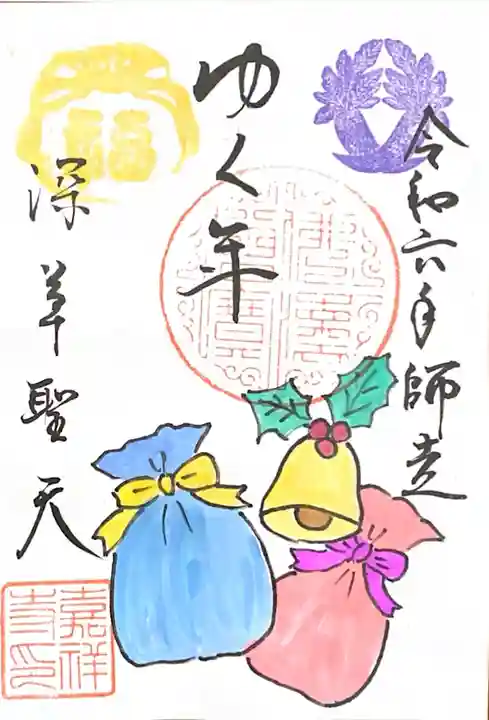 令和六年師走
ゆく年
深草聖天
嘉祥
寺印
福